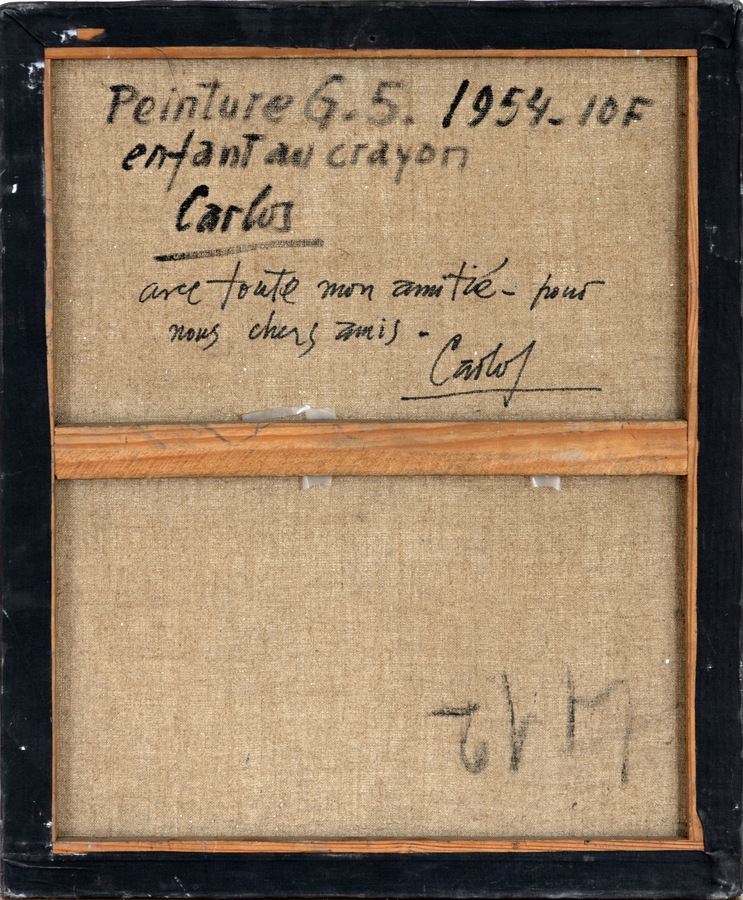 Peinture G. 5. 1954- 10F
enfant au crayon
Carlos
avec toute mon amitié - pour
nous chers amis.
Carlos